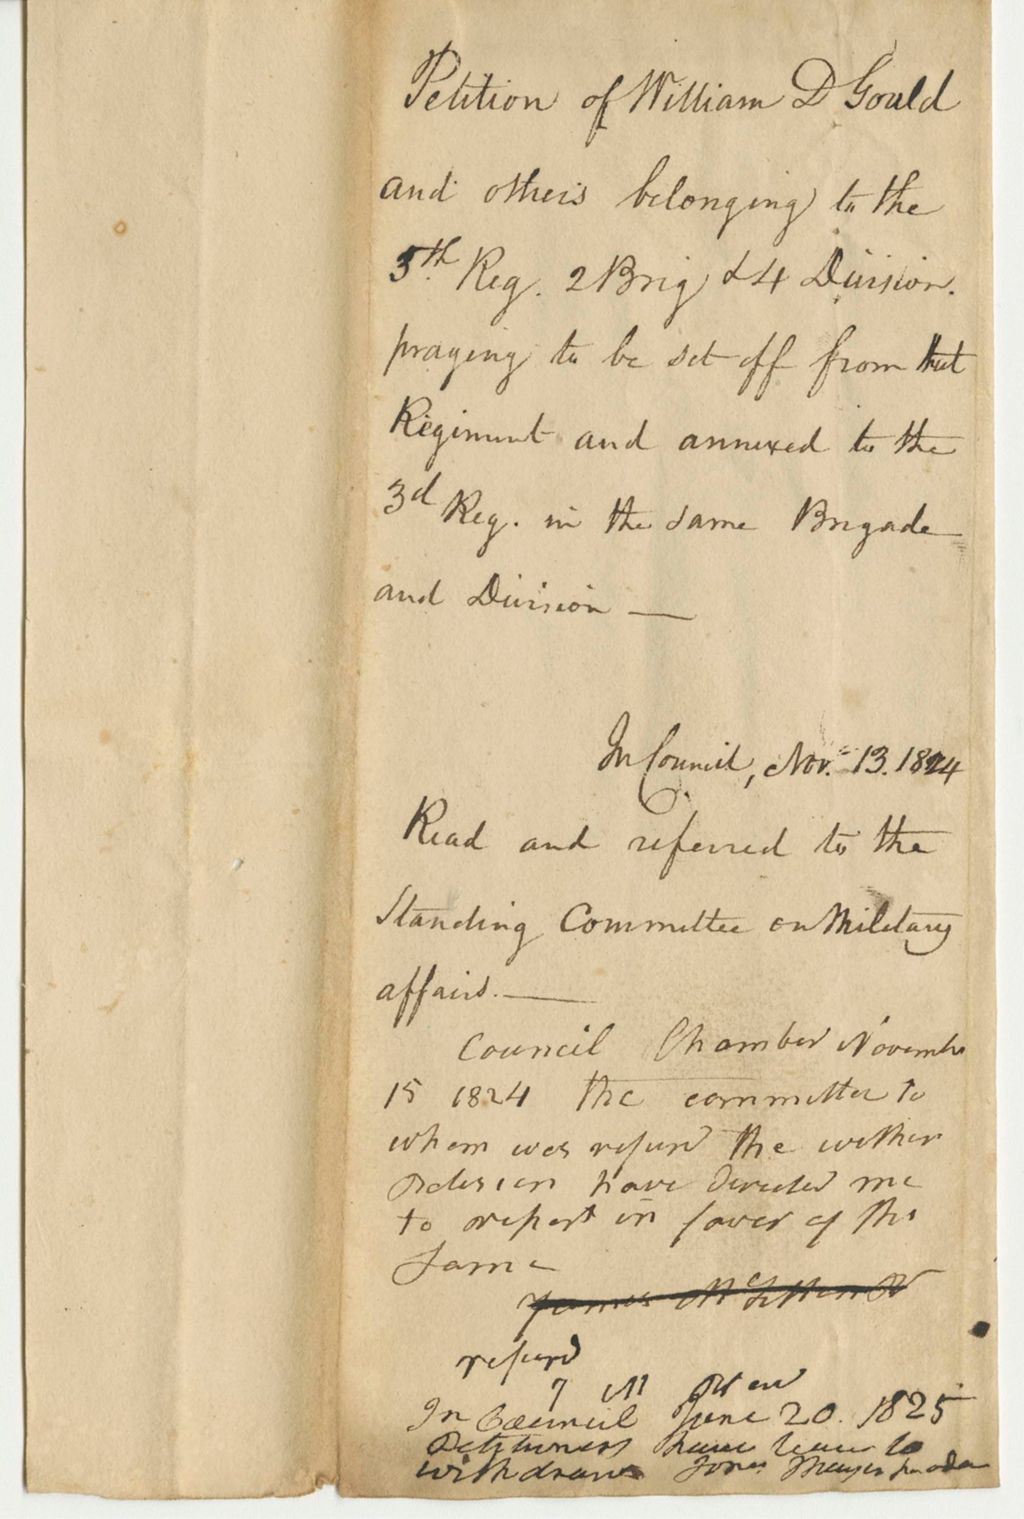 Petition of William D Gould
and others belonging to the
5th Reg. 2 Brig & 4 Division.
praying to be set off from that
Regiment and annexed to the
3d Reg. in the same Brigade
and Division —
In Council, Nov. 13. 1824
Read and referred to the
Standing Committee on Military
affairs. —
Council Chamber November
15 1824 the committee to
whom was refurd the within
have Directed me
to report in faver of the
Same
James
refurd
In Council June 20. 1825
Petitioners have leave to
withdraw Jonas